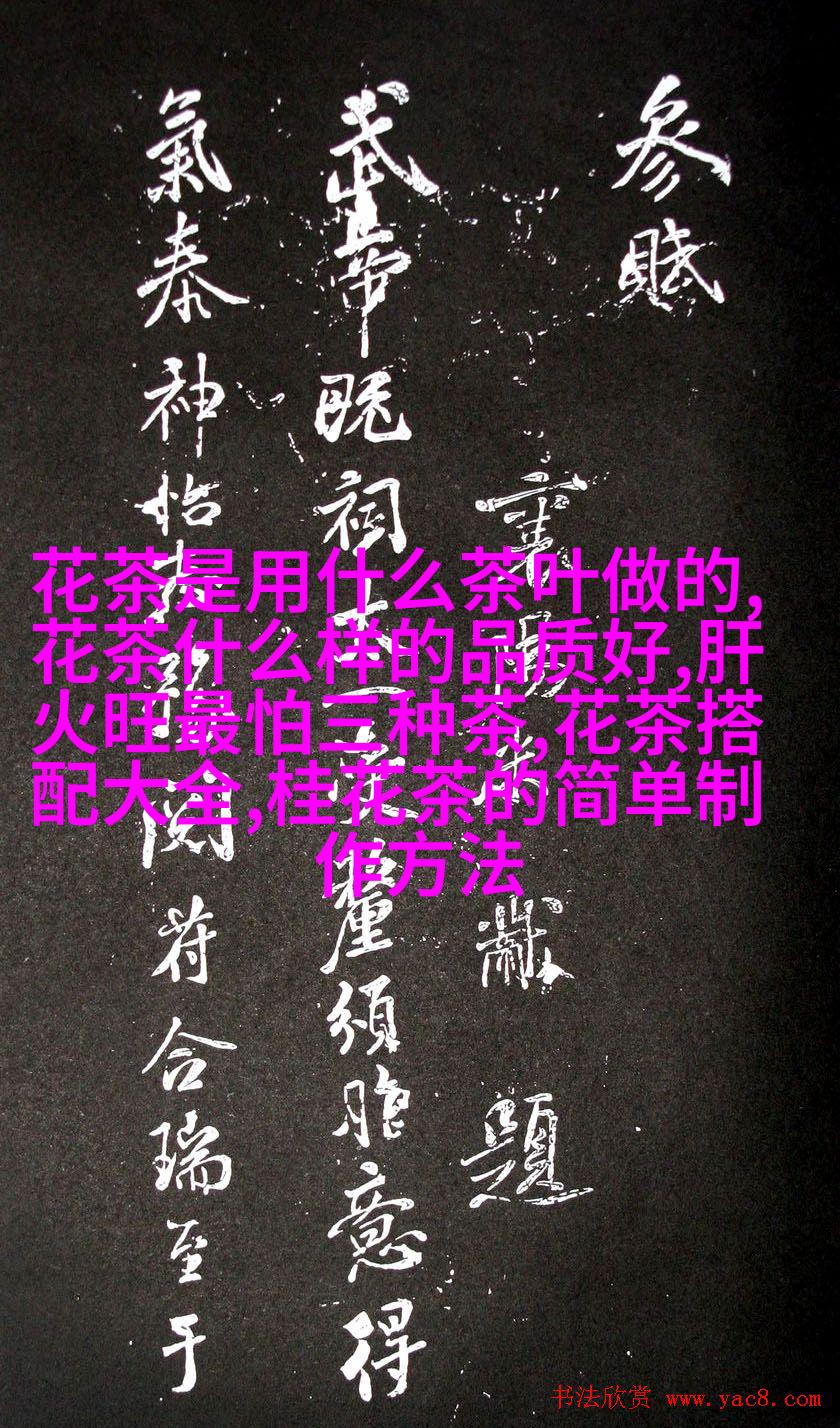 參賦
襄陽米黻題
武帝既祠太一受釐頒胙意得
氣泰神怡 閱苻合瑞至于
花茶是用什么茶叶做的,
花茶什么样的品质好,肝
火旺最怕三种茶,花茶搭
配大全,桂花茶的简单制
作方法
书法欣赏 www.yac8.com